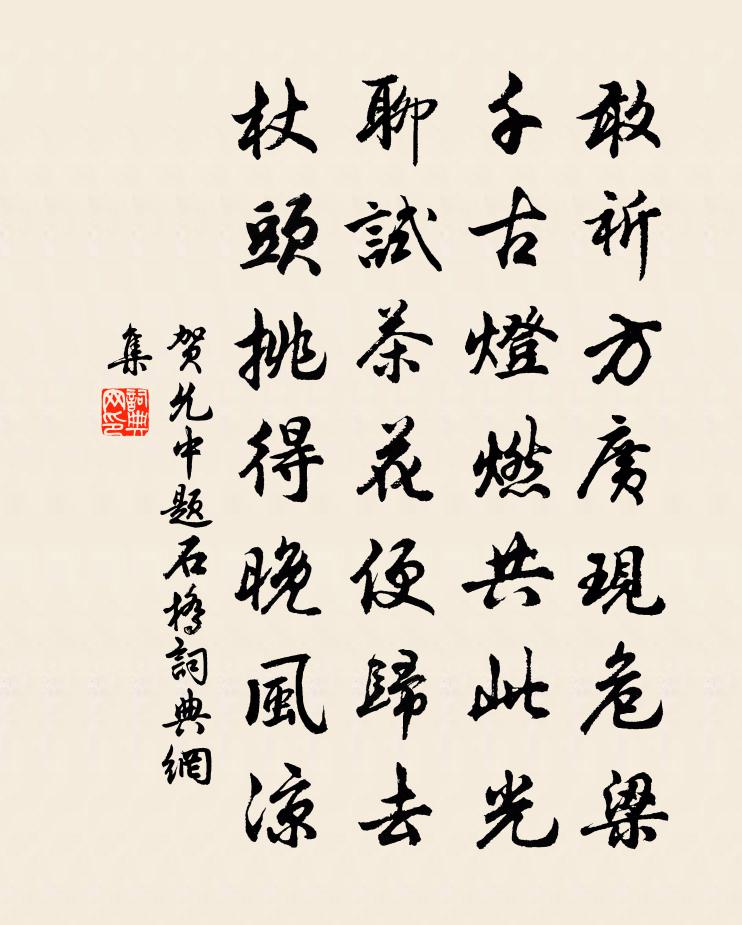 敢祈方廣現危梁
千古燈燃共此光
聊試茶花便歸去
杖頭挑得晚風涼
賀允中題石橋詞典網
集
詞典
网印